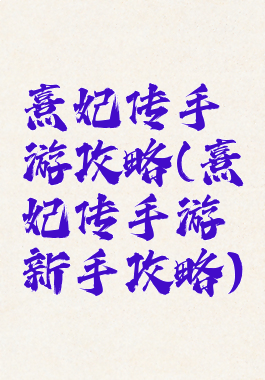 熹妃传手
游攻略(熹
妃传手游
新手攻略)